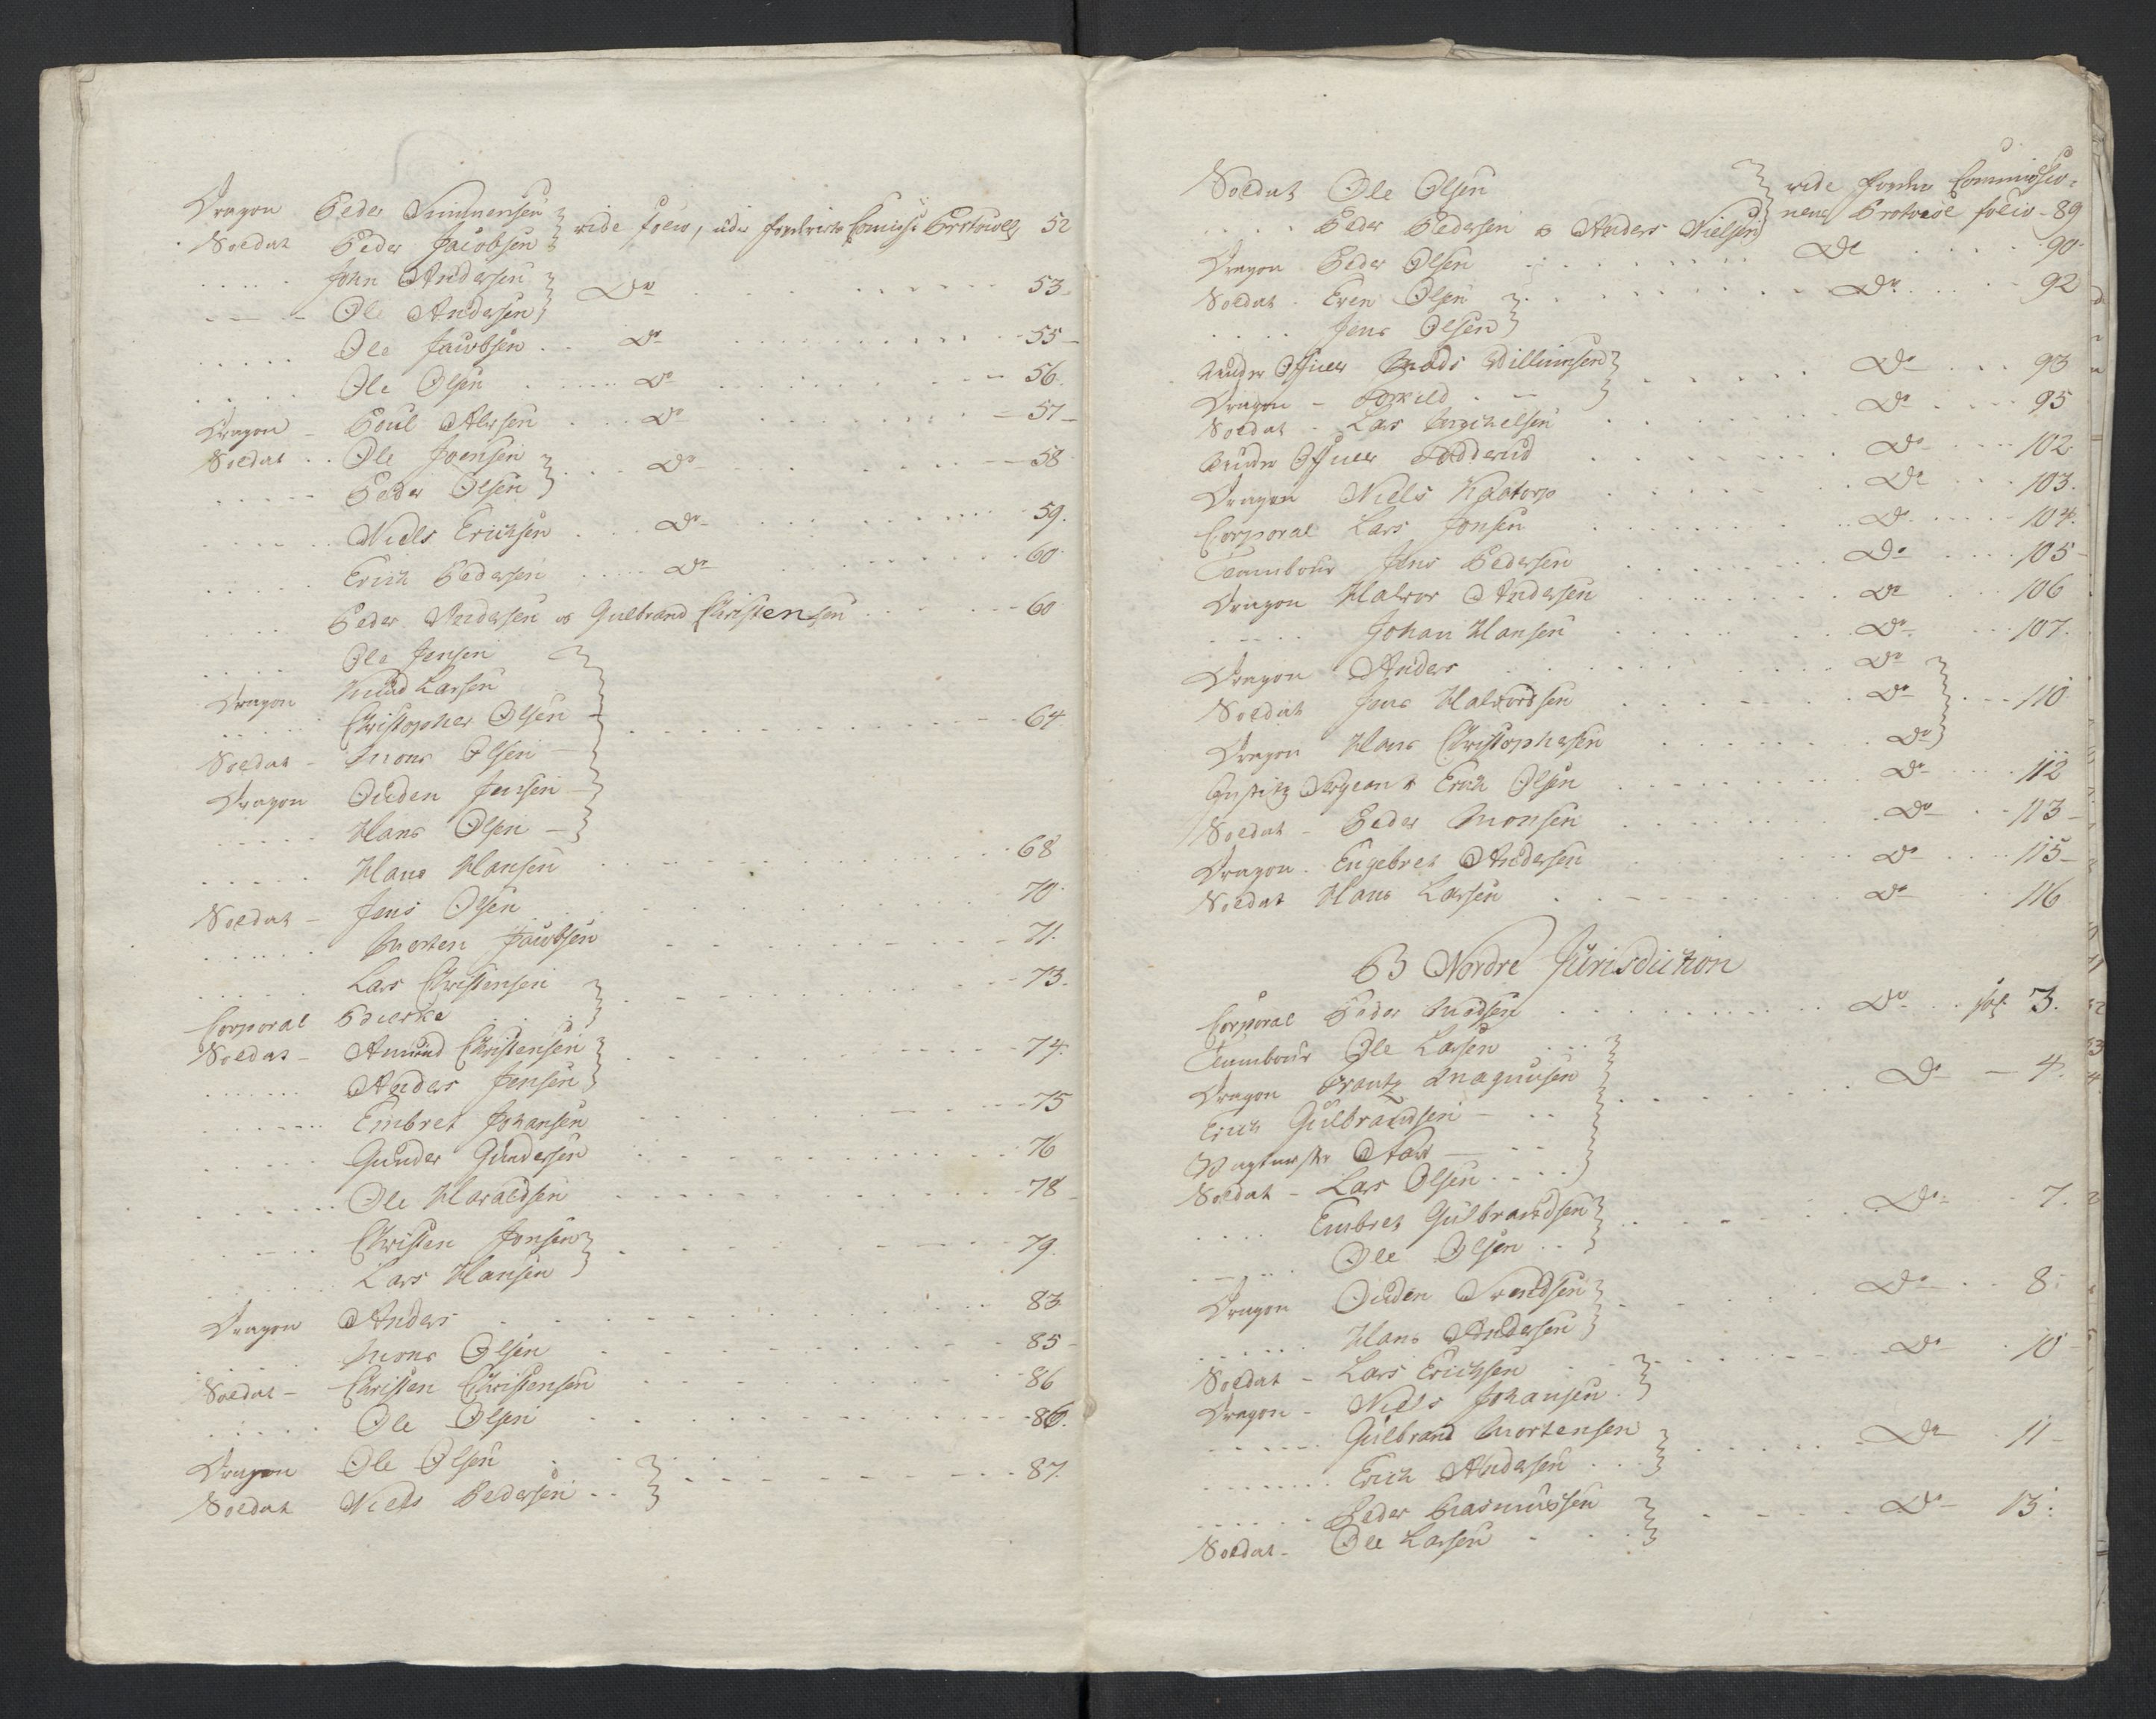 Dragon Peder Simmensen
Soldat Peder Jacobsen vide folio, udi Commiss: Protocoll 52
..... John Andersen
- - - Ole Andersen Do 53
..... Ole Jacobsen .. Do 55
..... Ole Olsen ..... Do 56
Dragon Poul Alersen ... Do 57
Soldat .. Ole Joensen
..... Peder Olsen ... Do 58
..... Niels Erichsen ... Do 59.
..... Erich Pedersen .... Do 60
..... Peder Andersen og Gulbrand Christensen 60
..... Ole Jensen
Dragon Knud Larsen
..... Christopher Olsen 64
Soldat - Mons Olsen
Dragon Ouden Jensen
..... Hans Olsen
..... Hans Hansen 68
Soldat - Jens Olsen 70
..... Morten Jacobsen 71.
..... Lars Christensen
Corporal 73.
Soldat - Amund Christensen
..... Anders Jensen 74.
..... Embret Johansen 75
..... Gunder Gundersen 76
..... Ole Haraldsen 78
..... Christen Jonsen
..... Lars Hansen 79.
Dragon Anders 83
..... Mons Olsen 85
Soldat - Christen Christensen 86
..... Ole Olsen 86.
Dragon Ole Olsen
Soldat Niels Pedersen .. 87.
Soldat Ole Olsen vide Commissio-
.... Peder Pedersen og Anders Nielsen nens Protocol folio 89
Dragon Peder Olsen Do 90
Soldat . Even Olsen Do 92
.... Jens Olsen
Under Officer Mads Willumsen Do 93
Dragon -
Soldat - Lars Michelsen Do 95
Under Officer Fodderud Do 102
Dragon Niels Do 103.
Corporal Lars Jonsen Do 104.
Tambour Jens Pedersen Do 105
Dragon Halvor Andersen Do 106
..... Johan Hansen Do 107.
Dragon Anders Do
Soldat Jens Halvordsen Do 110
Dragon Hans Christophersen Do
Sergeant Erich Olsen Do 112
Soldat - Peder Monsen Do 113
Dragon . Engebret Andersen Do 115
Soldat Hans Larsen Do 116
Nordre Jurisdiction
Corporal Peder Madsen Do fol 3.
Tambour Ole Larsen
Dragon Frantz Magnusen Do 4.
Erich Gulbrandsen
Wagtmester
Soldat - Lars Olsen
.... Embret Gulbrandsen Do 7.
..... Ole Olsen
Dragon Ouden Svendsen Do 8
..... Hans Andersen
Soldat - Lars Erichsen Do 10
Dragon - Niels Johansen
..... Gulbrand Mortensen Do 11
..... Erich Andersen
..... Peder Rasmussen Do 13.
Soldat - Ole Larsen